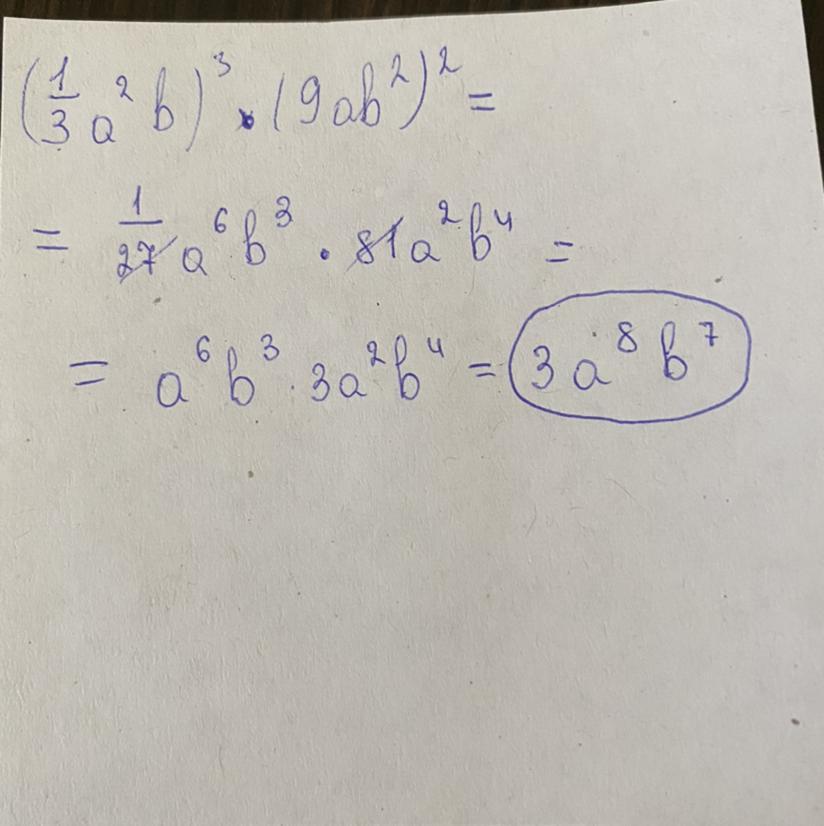 (1/3 a²b)³ · (9ab²)² =
= 1/27 a⁶b³ · 81a²b⁴ =
= a⁶b³ · 3a²b⁴ = 3a⁸b⁷